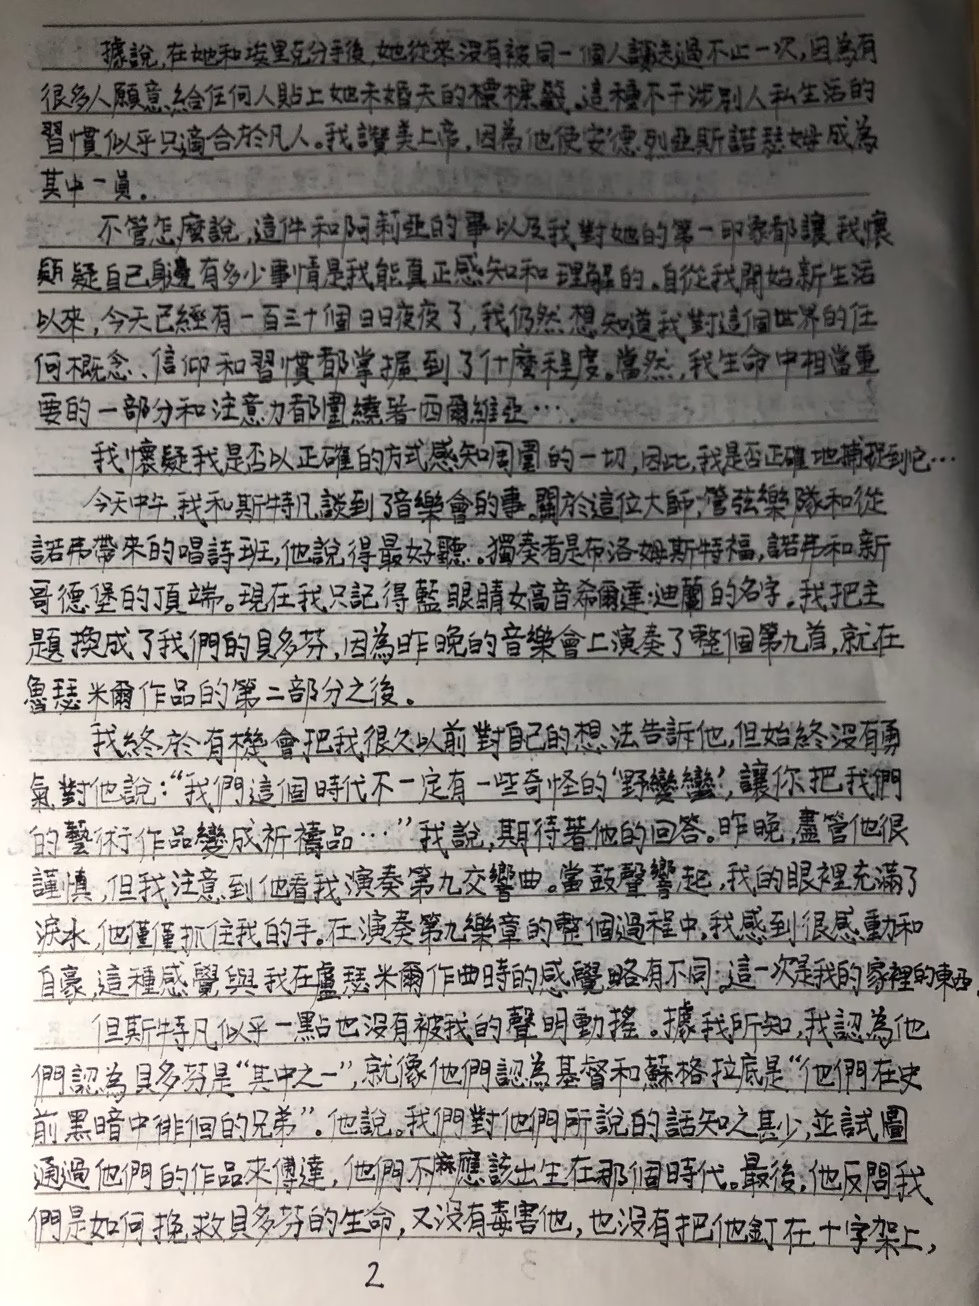 據說,在她和埃里克分手後,她從來沒有被同一個人護送過不止一次,因為有
很多人願意給任何人貼上她未婚夫的標標籤。這種不干涉別人私生活的
習慣似乎只適合於凡人。我讚美上帝,因為他使安德列亞斯諾瑟姆成為
其中一員。
不管怎麼說,這件和阿莉亞的事以及我對她的第一印象都讓我懷
疑疑自己身邊有多少事情是我能真正感知和理解的。自從我開始新生活
以來,今天已經有一百三十個日日夜夜了,我仍然想知道我對這個世界的任
何概念、信仰和習慣都掌握到了什麼程度。當然,我生命中相當重
要的一部分和注意力都圍繞著西爾維亞…
我懷疑我是否以正確的方式感知周圍的一切,因此,我是否正確地捕捉到它…
今天中午,我和斯特凡談到了音樂會的事。關於這位大師,管弦樂隊和從
諾弗帶來的唱詩班,他說得最好聽。獨奏者是布洛姆斯特福,諾弗和新
哥德堡的頂端。現在我只記得藍眼睛女高音希爾達·迪蘭的名字。我把主
題換成了我們的貝多芬,因為昨晚的音樂會上演奏了整個第九首,就在
魯瑟米爾作品的第二部分之後。
我終於有機會把我很久以前對自己的想法告訴他,但始終沒有勇
氣對他說:“我們這個時代不一定有一些奇怪的'野變蠻',讓你把我們
的藝術作品變成祈禱品…”我說,期待著他的回答。昨晚,儘管他很
謹慎,但我注意到他看我演奏第九交響曲。當鼓聲響起,我的眼裡充滿了
淚水,他僅僅抓住我的手。在演奏第九樂章的整個過程中,我感到很感動和
自豪,這種感覺與我在盧瑟米爾作曲時的感覺略有不同;這一次是我的家裡的東西,
但斯特凡似乎一點也沒有被我的聲明動搖。據我所知,我認為他
們認為貝多芬是“其中之一”,就像他們認為基督和蘇格拉底是“他們在史
前黑暗中徘徊的兄弟”。他說。我們對他們所說的話知之甚少,並試圖
通過他們的作品來傳達,他們不應該出生在那個時代。最後,他反問我
們是如何挽救貝多芬的生命,又沒有毒害他,也沒有把他釘在十字架上,
2